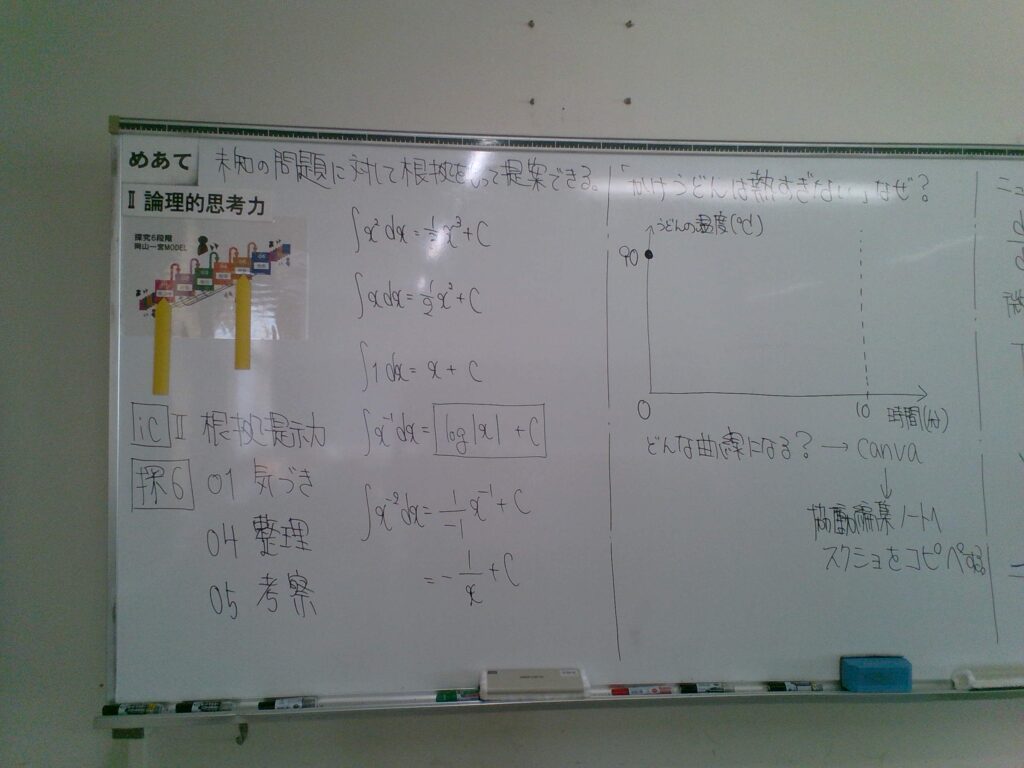 めあて 未知の問題に対して根拠をもって提案できる。
Ⅱ 論理的思考力
探究6段階
岡山一宮MODEL
iC Ⅱ 根拠提示力
探6 01 気づき
04 整理
05 考察
∫x²dx = 1/3 x³ + C
∫x dx = 1/2 x² + C
∫1 dx = x + C
∫x⁻¹dx = log|x| + C
∫x⁻²dx = 1/-1 x⁻¹ + C
= - 1/x + C
「かけうどんは熱すぎない」なぜ?
うどんの温度(℃)
90
0 10 時間(分)
どんな曲線になる? → canva
↓
協働編集ノートへ
スクショをコピペする。
ニュ